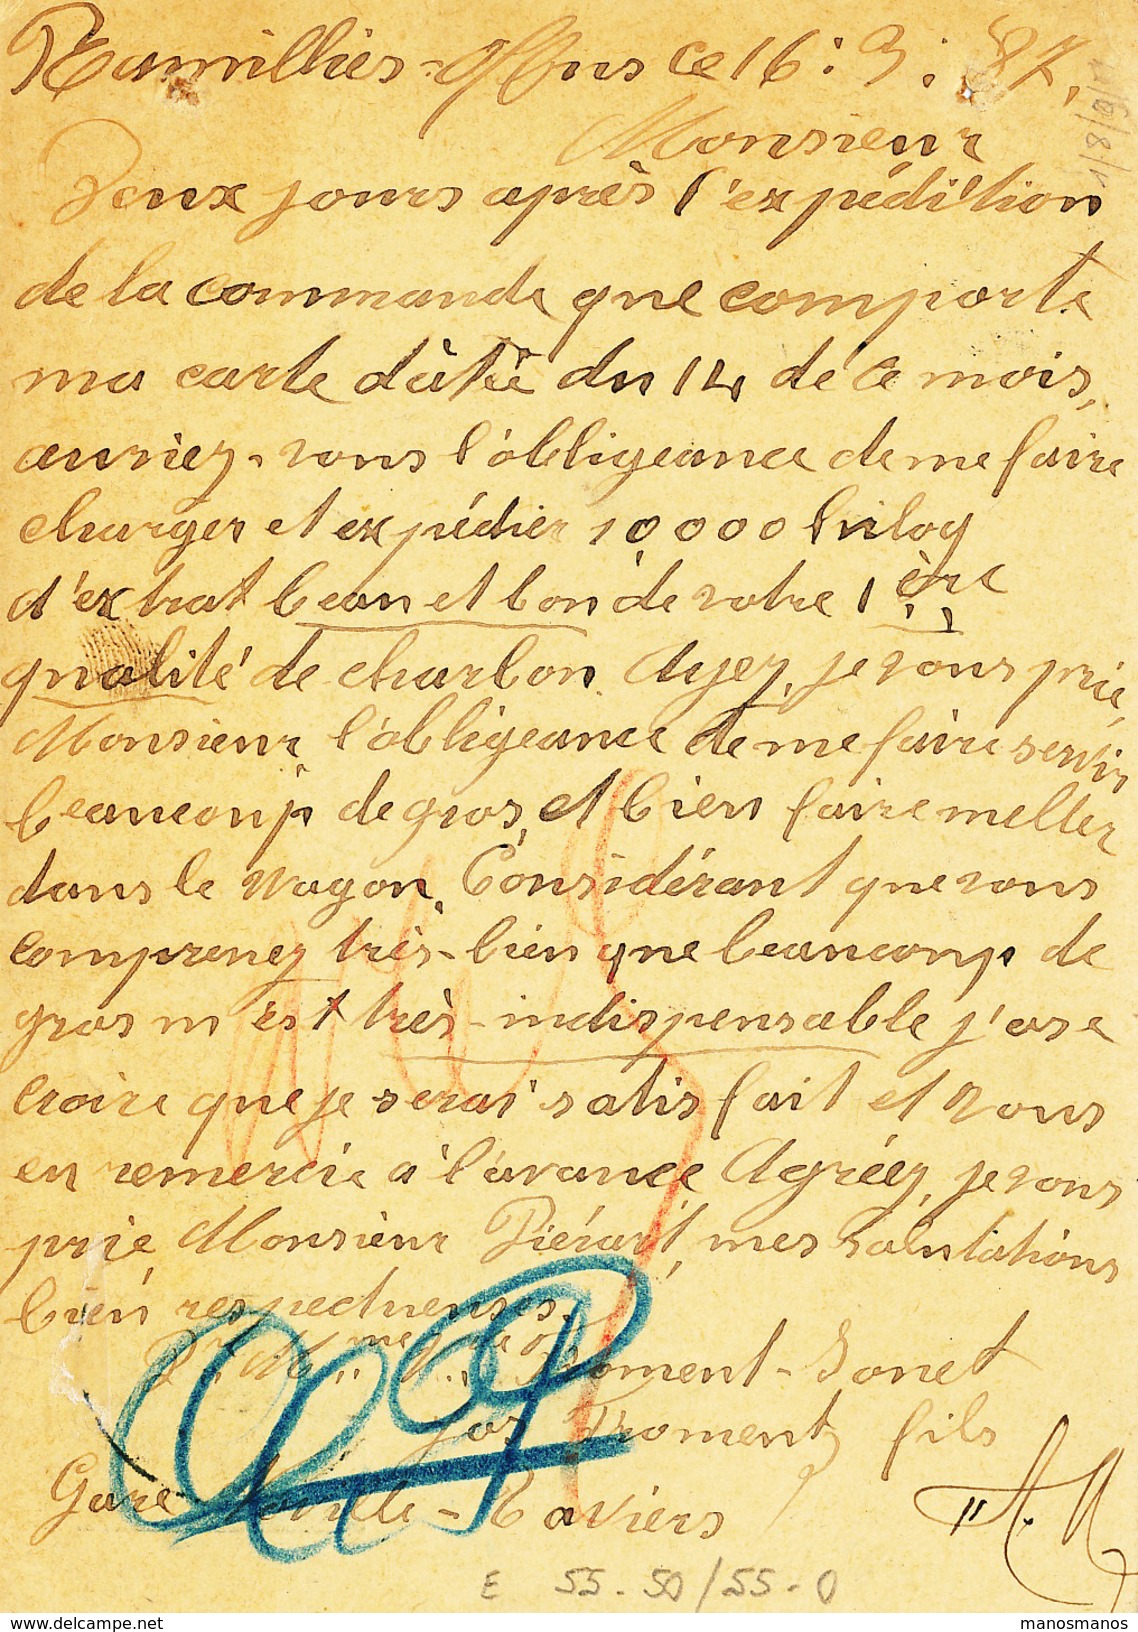 Ramillies-Offus ce 16: 3: 87,
Monsieur
Deux jours après l'expédition
de la commande que comporte
ma carte dâtée du 14 de ce mois,
auriez-vous l'obligeance de me faire
charger et expédier 10,000 kilog
d'extrat beau et bon de votre 1ère
qualité de charbon. Ayez, je vous prie,
Monsieur, l'obligeance de me faire servir
beaucoup de gros, et bien faire mettre
dans le wagon. Considérant que vous
comprenez très-bien que beaucoup de
gros m'est très-indispensable j'ose
croire que je serai satisfait et vous
en remercie à l'avance Agréez, je vous
prie, Monsieur Piérart, mes salutations
bien respectueuses.
Froment-Sonet
Jos Froment fils
Gare -Taviers
E 55-50/55-0
www.delcampe.net
manosmanos